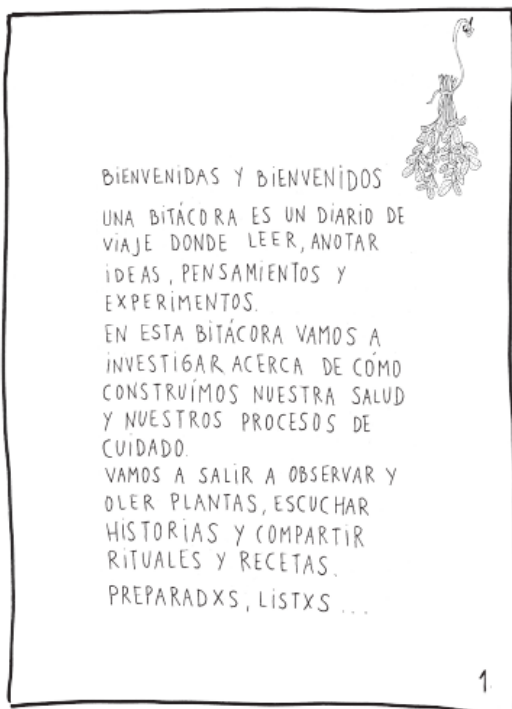 BiENVENiDAS Y BiENVENiDOS
UNA BiTÁCORA ES UN DiARiO DE
ViAJE DONDE LEER, ANOTAR
iDEAS, PENSAMiENTOS Y
EXPERiMENTOS.
EN ESTA BiTÁCORA VAMOS A
iNVESTiGAR ACERCA DE CÓMO
CONSTRUÍMOS NUESTRA SALUD
Y NUESTROS PROCESOS DE
CUiDADO.
VAMOS A SALiR A OBSERVAR Y
OLER PLANTAS, ESCUCHAR
HiSTORiAS Y COMPARTiR
RiTUALES Y RECETAS.
PREPARADXS, LiSTXS...
1.